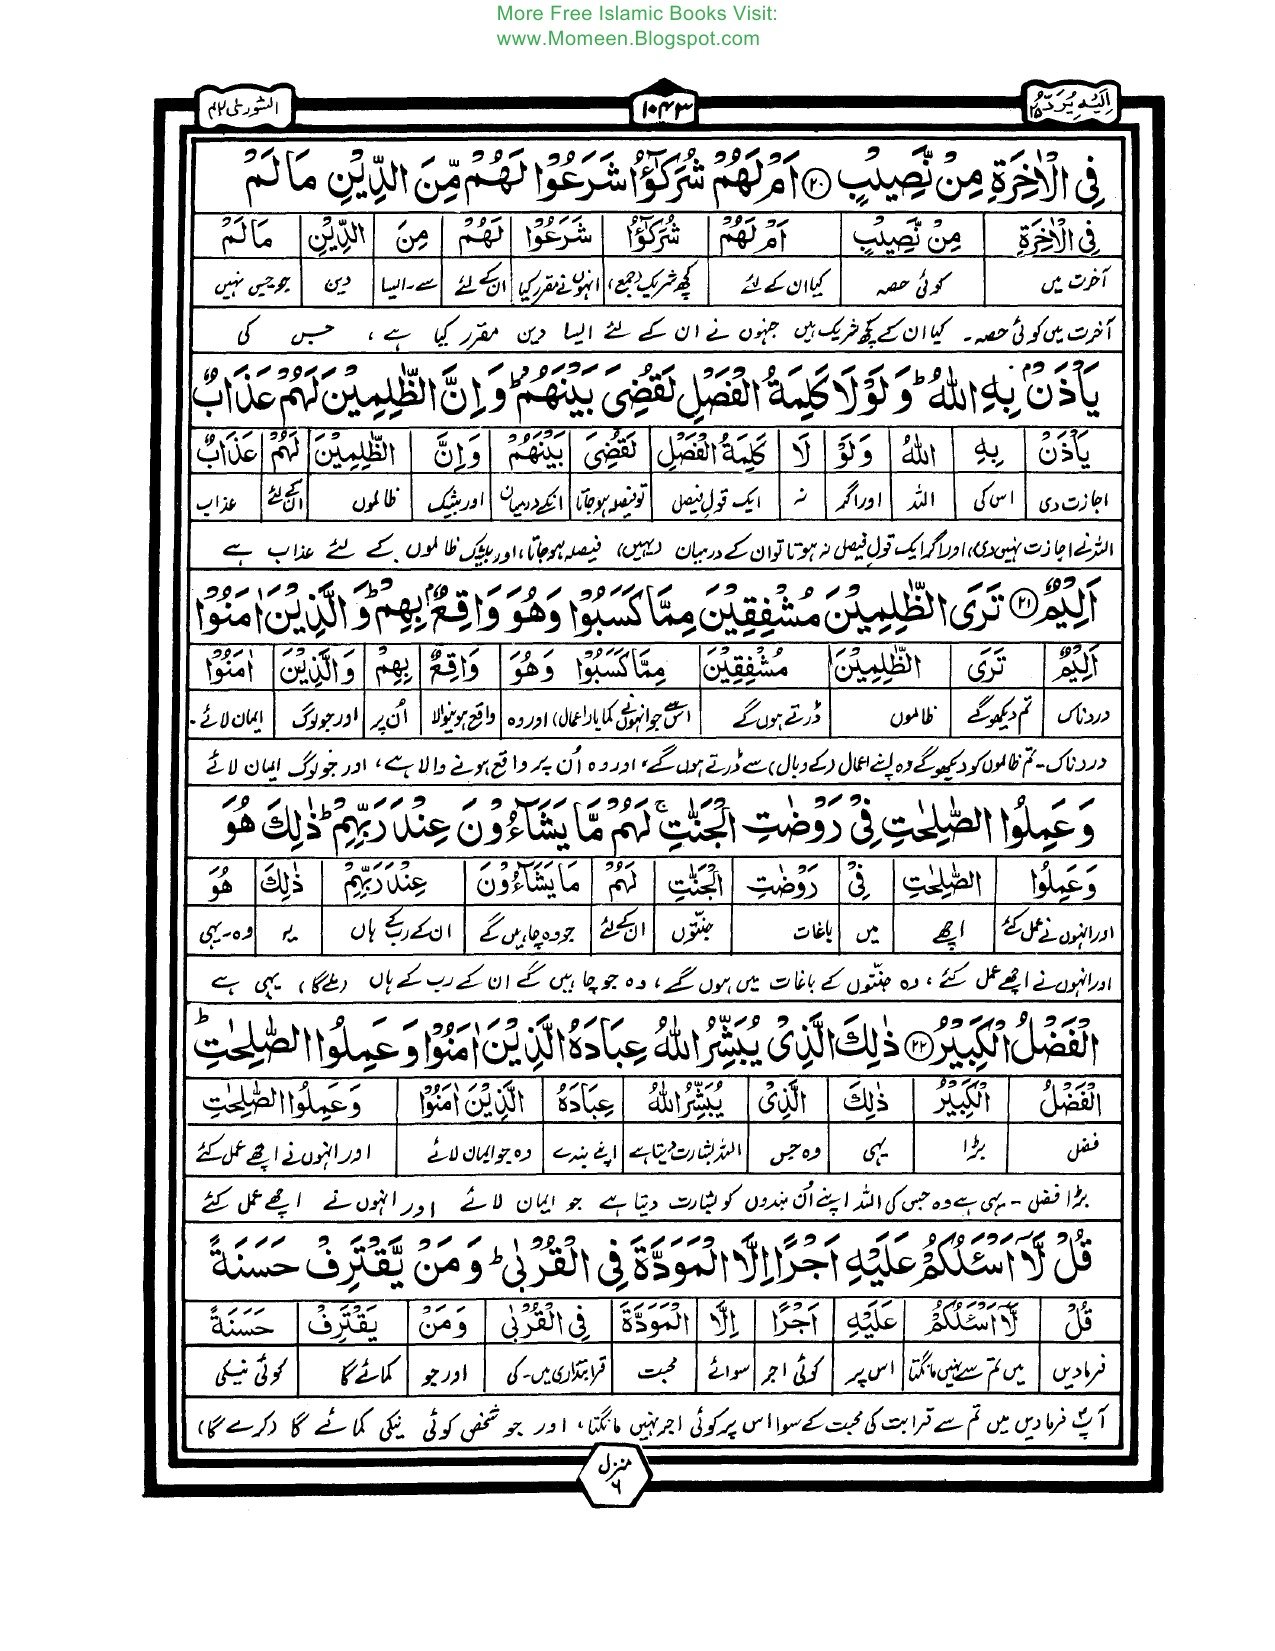 More Free Islamic Books Visit:
www.Momeen.Blogspot.com
اِلَيْهِ يُرَدُّ ٢٥
١٠٤٣
الشورٰی ٤٢
فِي الْاٰخِرَةِ مِنْ نَّصِيْبٍ ۝٢٠ اَمْ لَهُمْ شُرَكٰٓؤُا شَرَعُوْا لَهُمْ مِّنَ الدِّيْنِ مَا لَمْ
فِي الْاٰخِرَةِ مِنْ نَّصِيْبٍ اَمْ لَهُمْ شُرَكٰٓؤُا شَرَعُوْا لَهُمْ مِنَ الدِّيْنِ مَا لَمْ
آخرت میں کوئی حصہ کیا ان کے لئے کچھ شریک (جمع) انہوں نے مقرر کیا ان کے لئے سے۔ایسا دین جو جس نہیں
آخرت میں کوئی حصہ۔ کیا ان کے کچھ شریک ہیں جنہوں نے ان کے لئے ایسا دین مقرر کیا ہے، جس کی
يَاْذَنْۢ بِهِ اللّٰهُ ؕ وَلَوْلَا كَلِمَةُ الْفَصْلِ لَقُضِيَ بَيْنَهُمْ ؕ وَاِنَّ الظّٰلِمِيْنَ لَهُمْ عَذَابٌ
يَاْذَنْ بِهِ اللّٰهُ وَلَوْ لَا كَلِمَةُ الْفَصْلِ لَقُضِيَ بَيْنَهُمْ وَاِنَّ الظّٰلِمِيْنَ لَهُمْ عَذَابٌ
اجازت دی اس کی اللہ اور اگر نہ ایک قول فیصل تو فیصلہ ہوجاتا انکے درمیان اور بیشک ظالموں ان کے لئے عذاب
اللہ نے اجازت نہیں دی، اور اگر ایک قول فیصل نہ ہوتا تو ان کے درمیان (یہیں) فیصلہ ہوجاتا، اور بیشک ظالموں کے لئے عذاب ہے
اَلِيْمٌ ۝٢١ تَرَى الظّٰلِمِيْنَ مُشْفِقِيْنَ مِمَّا كَسَبُوْا وَهُوَ وَاقِعٌۢ بِهِمْ ؕ وَالَّذِيْنَ اٰمَنُوْا
اَلِيْمٌ تَرَى الظّٰلِمِيْنَ مُشْفِقِيْنَ مِمَّا كَسَبُوْا وَهُوَ وَاقِعٌ بِهِمْ وَالَّذِيْنَ اٰمَنُوْا
دردناک تم دیکھو گے ظالموں ڈرتے ہوں گے اس سے جو انہوں نے کمایا (اعمال) اور وہ واقع ہونیوالا اُن پر اور جو لوگ ایمان لائے۔
دردناک۔ تم ظالموں کو دیکھو گے وہ اپنے اعمال (کے وبال) سے ڈرتے ہوں گے، اور وہ اُن پر واقع ہونے والا ہے، اور جو لوگ ایمان لائے
وَعَمِلُوا الصّٰلِحٰتِ فِيْ رَوْضٰتِ الْجَنّٰتِ ۚ لَهُمْ مَّا يَشَآءُوْنَ عِنْدَ رَبِّهِمْ ؕ ذٰلِكَ هُوَ
وَعَمِلُوا الصّٰلِحٰتِ فِيْ رَوْضٰتِ الْجَنّٰتِ لَهُمْ مَا يَشَآءُوْنَ عِنْدَ رَبِّهِمْ ذٰلِكَ هُوَ
اور انہوں نے عمل کئے اچھے میں باغات جنّتوں ان کے لئے جو وہ چاہیں گے ان کے رب کے ہاں یہ وہ۔یہی
اور انہوں نے اچھے عمل کئے، وہ جنّتوں کے باغات میں ہوں گے، وہ جو چاہیں گے ان کے رب کے ہاں (ملے گا) یہی ہے
الْفَضْلُ الْكَبِيْرُ ۝٢٢ ذٰلِكَ الَّذِيْ يُبَشِّرُ اللّٰهُ عِبَادَهُ الَّذِيْنَ اٰمَنُوْا وَعَمِلُوا الصّٰلِحٰتِ ؕ
الْفَضْلُ الْكَبِيْرُ ذٰلِكَ الَّذِيْ يُبَشِّرُ اللّٰهُ عِبَادَهُ الَّذِيْنَ اٰمَنُوْا وَعَمِلُوا الصّٰلِحٰتِ
فضل بڑا یہی وہ جس اللہ بشارت دیتا ہے اپنے بندے وہ جو ایمان لائے اور انہوں نے اچھے عمل کئے
بڑا فضل۔ یہی ہے وہ جس کی اللہ اپنے اُن بندوں کو بشارت دیتا ہے جو ایمان لائے اور انہوں نے اچھے عمل کئے
قُلْ لَّآ اَسْـَٔلُكُمْ عَلَيْهِ اَجْرًا اِلَّا الْمَوَدَّةَ فِي الْقُرْبٰى ؕ وَمَنْ يَّقْتَرِفْ حَسَنَةً
قُلْ لَّآ اَسْـَٔلُكُمْ عَلَيْهِ اَجْرًا اِلَّا الْمَوَدَّةَ فِي الْقُرْبٰى وَمَنْ يَّقْتَرِفْ حَسَنَةً
فرمادیں میں تم سے نہیں مانگتا اس پر کوئی اجر سوائے محبت قرابتداری میں۔کی اور جو کمائے گا کوئی نیکی
آپؐ فرمادیں میں تم سے قرابت کی محبت کے سوا اس پر کوئی اجر نہیں مانگتا، اور جو شخص کوئی نیکی کمائے گا (کرے گا)
منزل ٦